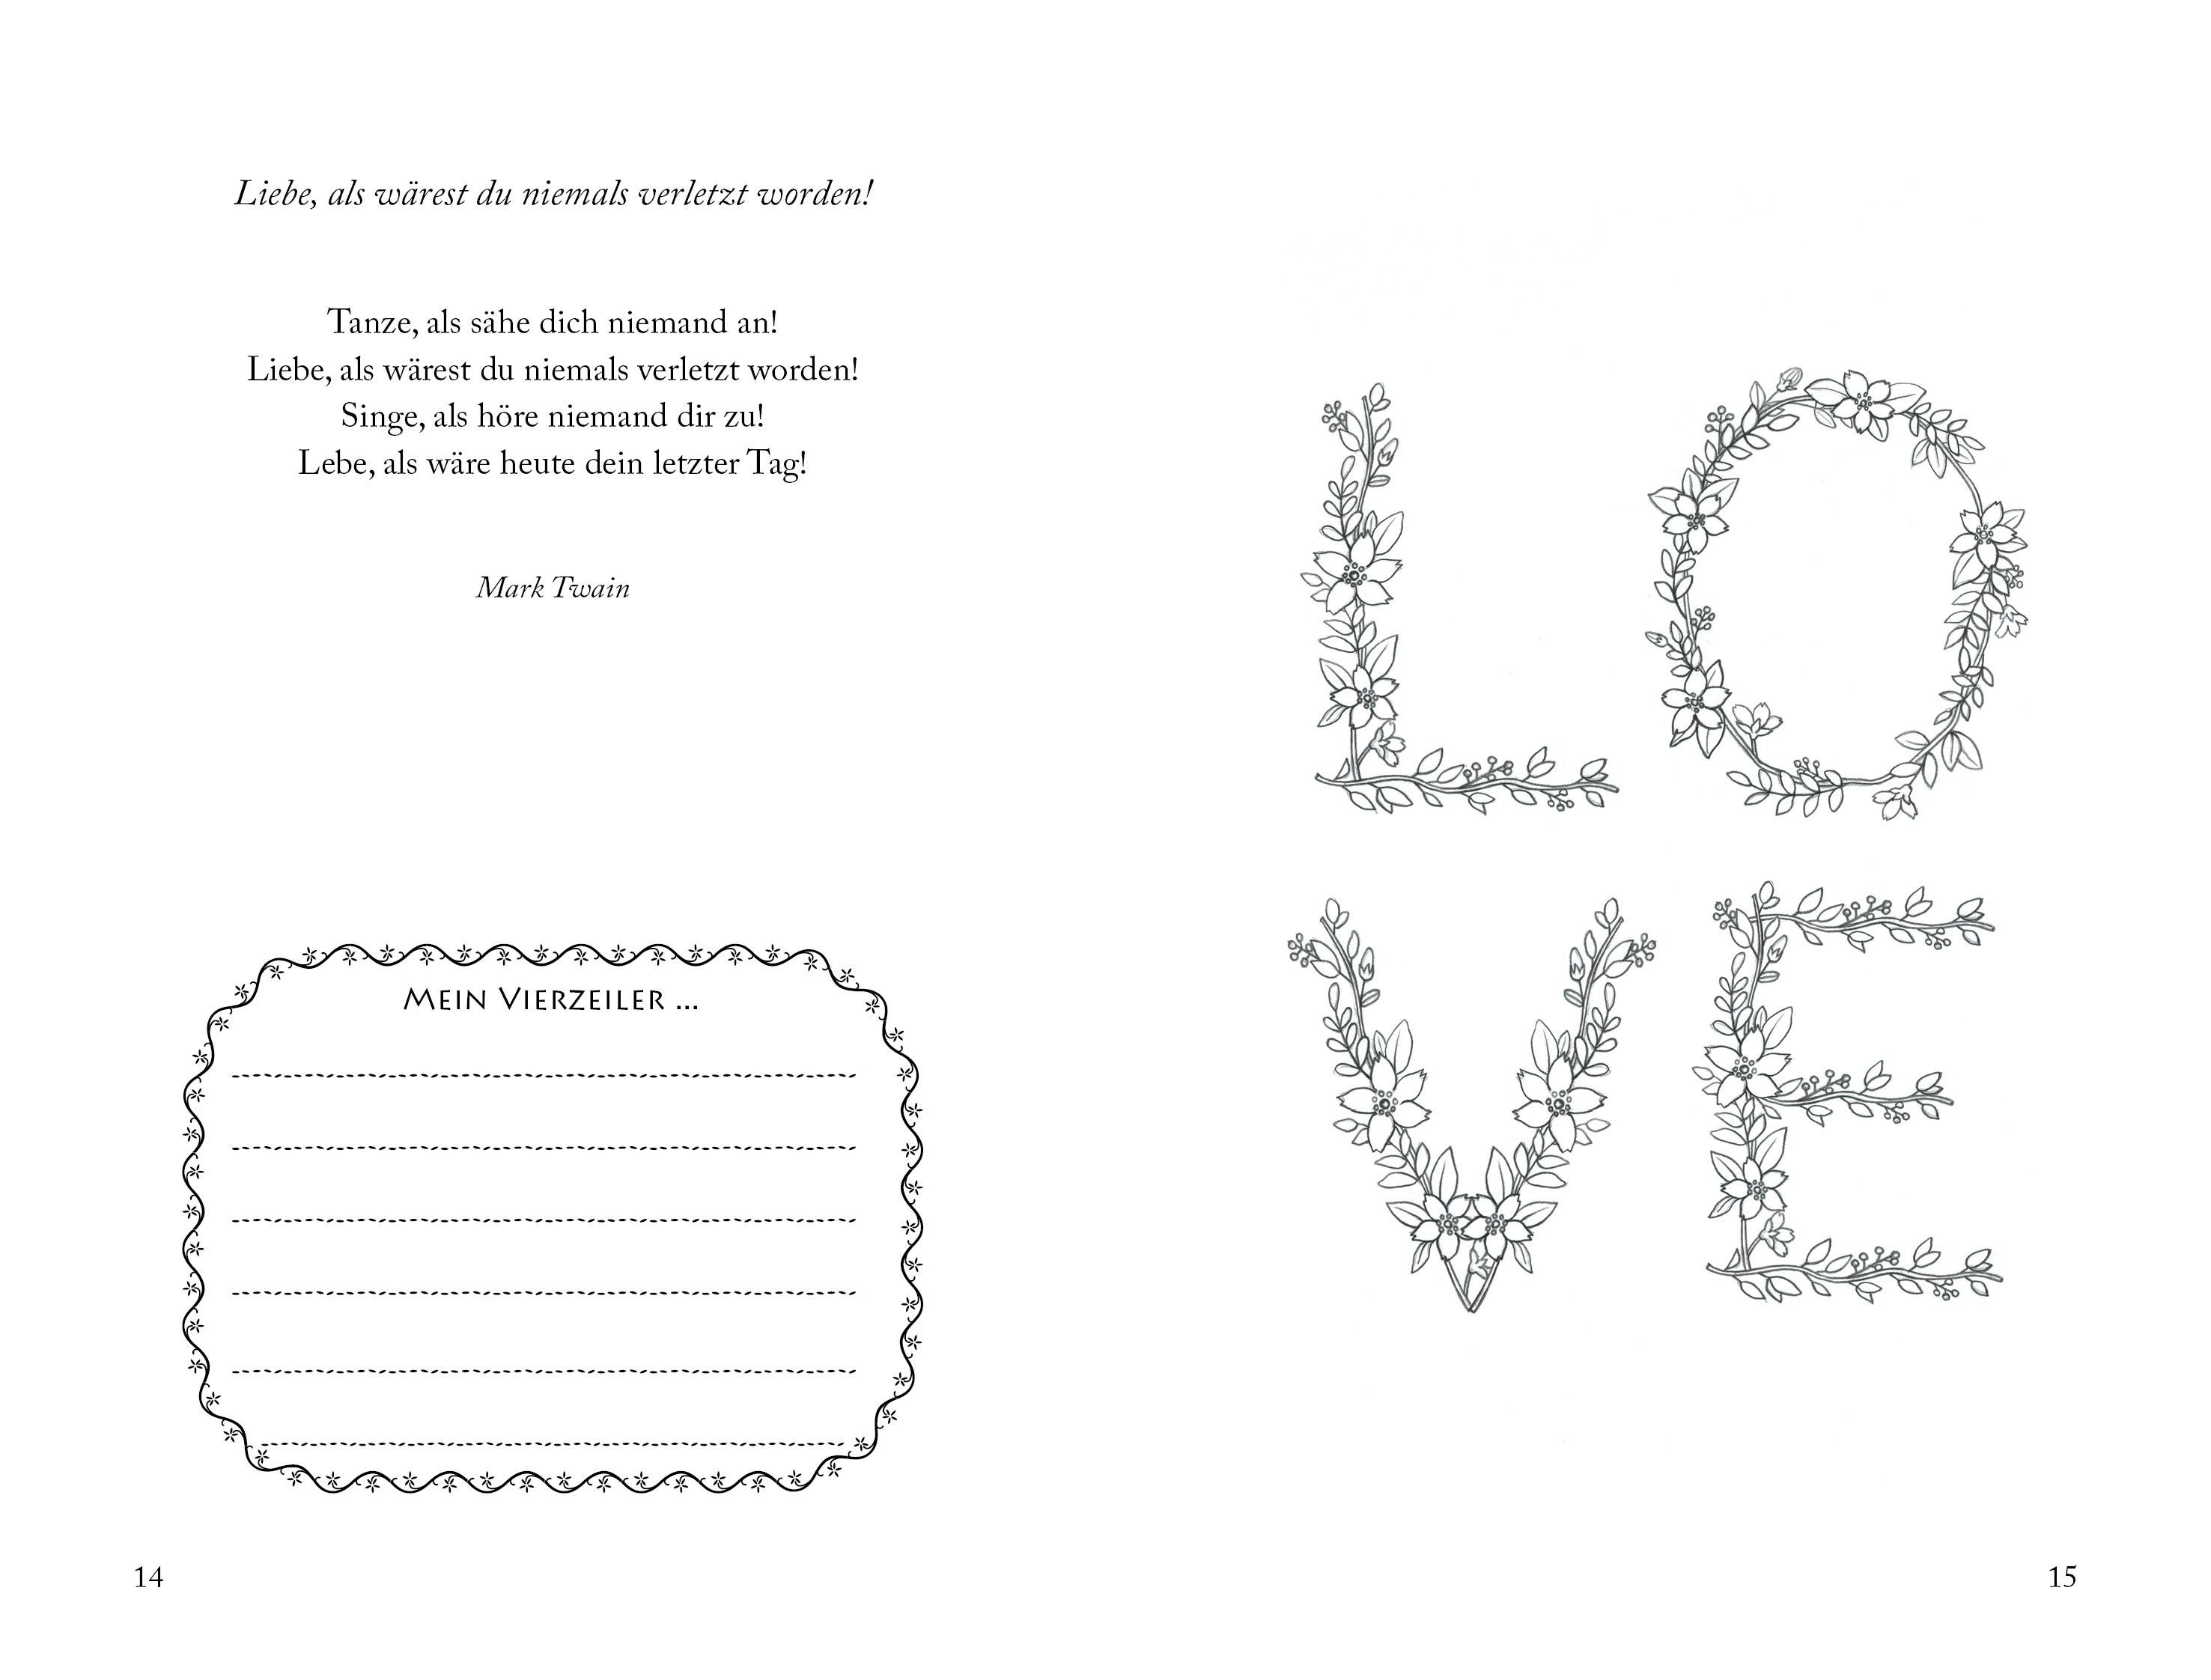 Liebe, als wärest du niemals verletzt worden!
Tanze, als sähe dich niemand an!
Liebe, als wärest du niemals verletzt worden!
Singe, als höre niemand dir zu!
Lebe, als wäre heute dein letzter Tag!
Mark Twain
Mein Vierzeiler ...
14
LO
VE
15